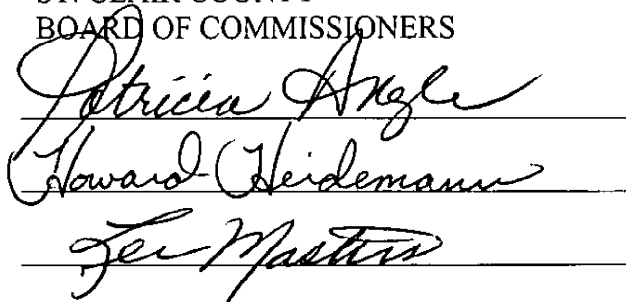 BOARD OF COMMISSIONERS
Patricia Angle
Howard Heidemann
Masters